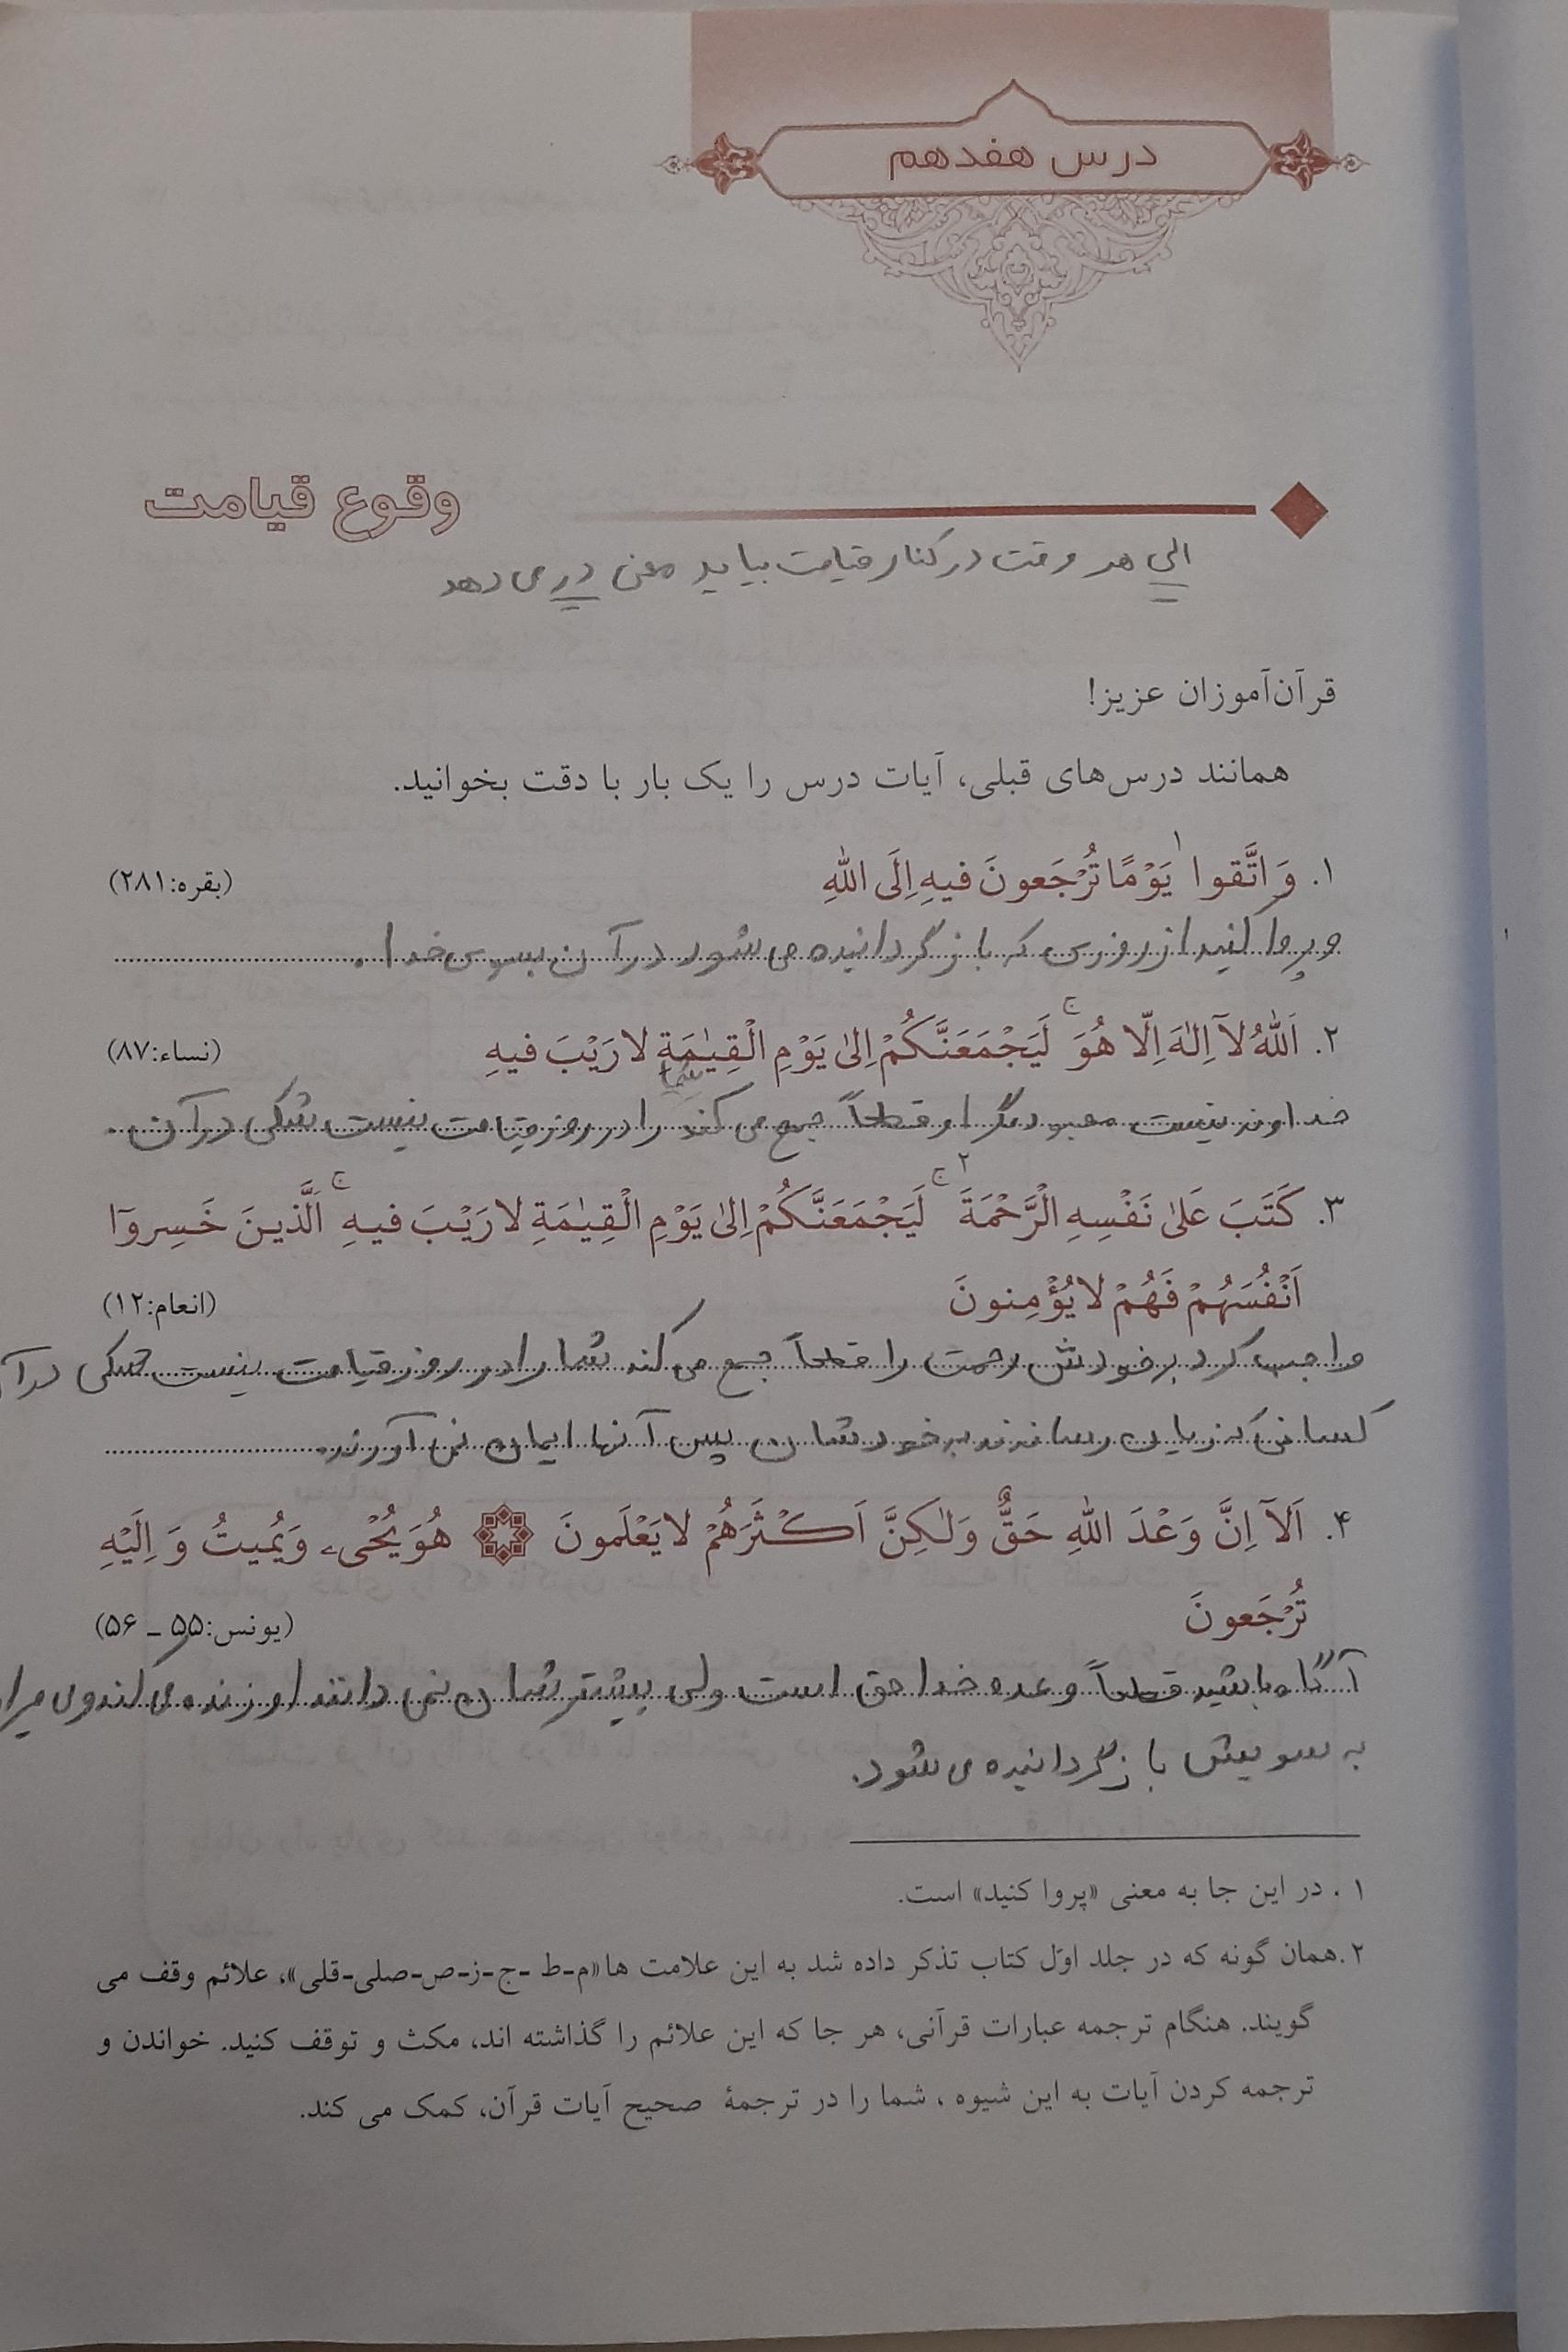 درس هفدهم
وقوع قیامت
الی هر وقت در کنار قیامت بیاید معنی در می دهد
قرآن‌آموزان عزیز!
همانند درس‌های قبلی، آیات درس را یک بار با دقت بخوانید.
۱. وَ اتَّقوا ۱ یَوْمًا تُرْجَعونَ فیهِ اِلَی اللّٰهِ (بقره:۲۸۱)
و پروا کنید از روزی که بازگردانیده می شود در آن بسوی خدا.
۲. اَللّٰهُ لاۤ اِلٰهَ اِلّا هُوَ ۚ لَیَجْمَعَنَّکُمْ اِلیٰ یَوْمِ الْقِیٰمَةِ لا رَیْبَ فیهِ (نساء:۸۷)
شما
خداوند نیست معبود دیگر او قطعاً جمع می کند را در روز قیامت نیست شکی در آن.
۳. کَتَبَ عَلیٰ نَفْسِهِ الْرَّحْمَةَ ۚ ۲ لَیَجْمَعَنَّکُمْ اِلیٰ یَوْمِ الْقِیٰمَةِ لا رَیْبَ فیهِ ۚ اَلَّذینَ خَسِروۤا
اَنْفُسَهُمْ فَهُمْ لا یُؤْمِنونَ (انعام:۱۲)
واجب کرد بر خودش رحمت را قطعاً جمع می کند شما را در روز قیامت نیست شکی در آ
کسانی که زیان رسانند بر خودشان پس آنها ایمان نمی آورند.
۴. اَلاۤ اِنَّ وَعْدَ اللّٰهِ حَقٌّ وَلٰکِنَّ اَکْثَرَهُمْ لا یَعْلَمونَ هُوَ یُحْیۦ وَیُمیتُ وَ اِلَیْهِ
تُرْجَعونَ (یونس:۵۵ ـ ۵۶)
آگاه باشید قطعاً وعده خدا حق است ولی بیشترشان نمی دانند او زنده می کند و می
به سویش بازگردانیده می شود.
۱ . در این جا به معنی «پروا کنید» است.
۲.همان گونه که در جلد اوّل کتاب تذکر داده شد به این علامت ها«م-ط -ج-ز-ص-صلی-قلی»، علائم وقف می
گویند. هنگام ترجمه عبارات قرآنی، هر جا که این علائم را گذاشته اند، مکث و توقف کنید. خواندن و
ترجمه کردن آیات به این شیوه ، شما را در ترجمۀ صحیح آیات قرآن، کمک می کند.